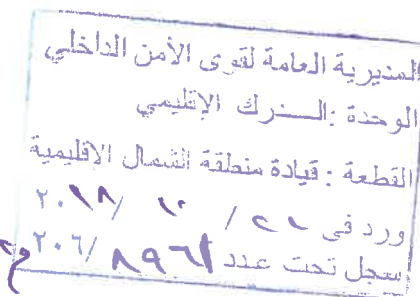 المديرية العامة لقوى الأمن الداخلي
الوحدة :الــدرك الإقليمي
القطعة : قيادة منطقة الشمال الاقليمية
ورد في / / ٢٠١٨
سجل تحت عدد /٢٠٦